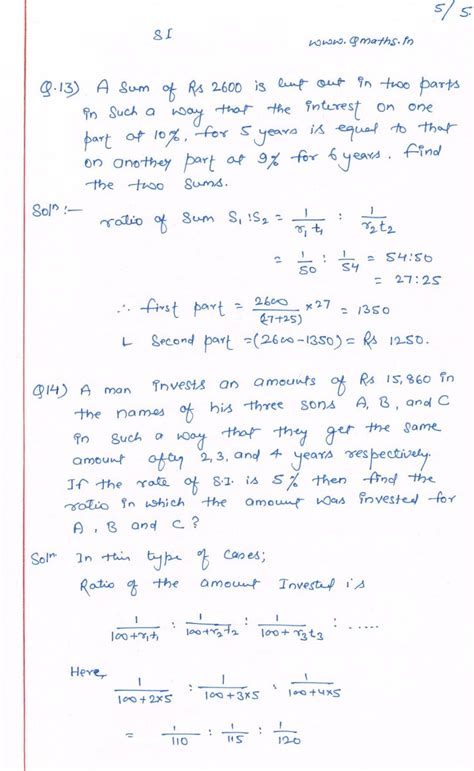 5/5
SI
www.Qmaths.in
Q.13) A Sum of Rs 2600 is lent out in two parts
in Such a way that the interest on one
part at 10%, for 5 years is equal to that
on another part at 9% for 6 years. Find
the two Sums.
Solⁿ :— ratio of Sum S₁:S₂ = 1/r₁t₁ : 1/r₂t₂
= 1/50 : 1/54 = 54:50
= 27:25
∴ first part = 2600/(27+25) × 27 = 1350
L Second part = (2600-1350) = Rs 1250.
Q14) A man invests an amounts of Rs 15,860 in
the names of his three sons A, B, and C
in such a way that they get the same
amount after 2, 3, and 4 years respectively.
If the rate of S.I. is 5% then find the
ratio in which the amount was invested for
A, B and C?
Solⁿ In this type of cases;
Ratio of the amount Invested is
1/100+r₁t₁ : 1/100+r₂t₂ : 1/100+r₃t₃ : .....
Here,
1/100+2×5 : 1/100+3×5 : 1/100+4×5
= 1/110 : 1/115 : 1/120